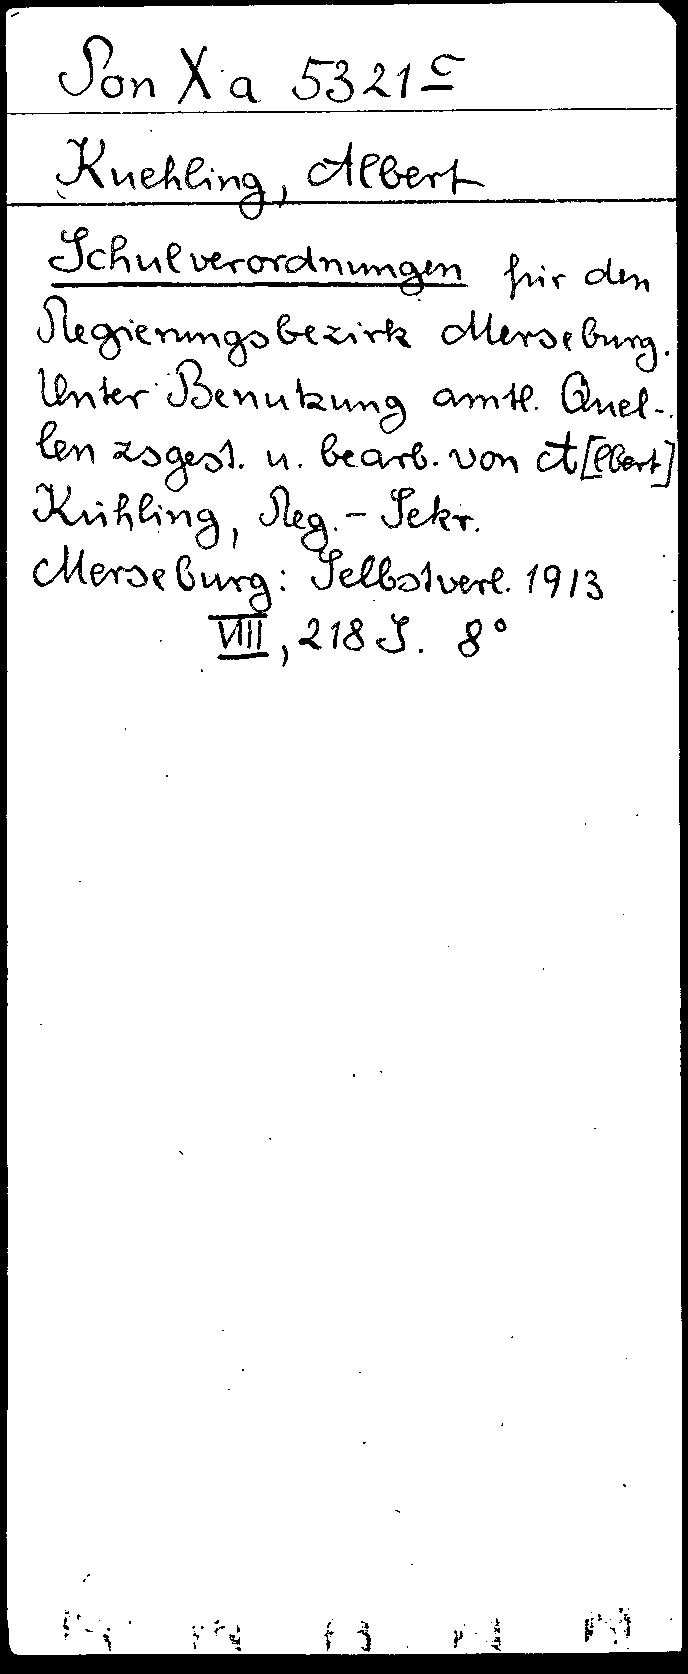 Pon X a 5321 c
Kuehling, Albert
Schulverordnungen für den
Regierungsbezirk Merseburg.
Unter Benutzung amtl. Quel-
len zsgest. u. bearb. von A[lbert]
Kühling, Reg.-Sekr.
Merseburg: Selbstverl. 1913
VIII, 218 S. 8°